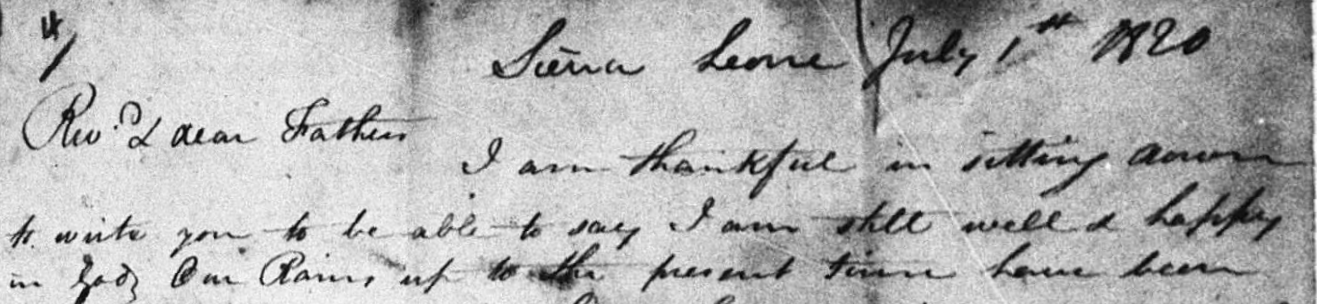 4/
Sierra Leone July 1st 1820
Revd & dear Fathers
I am thankful in sitting down
to write you to be able to say I am still well & happy
in God, Our Rains up to the present time have been